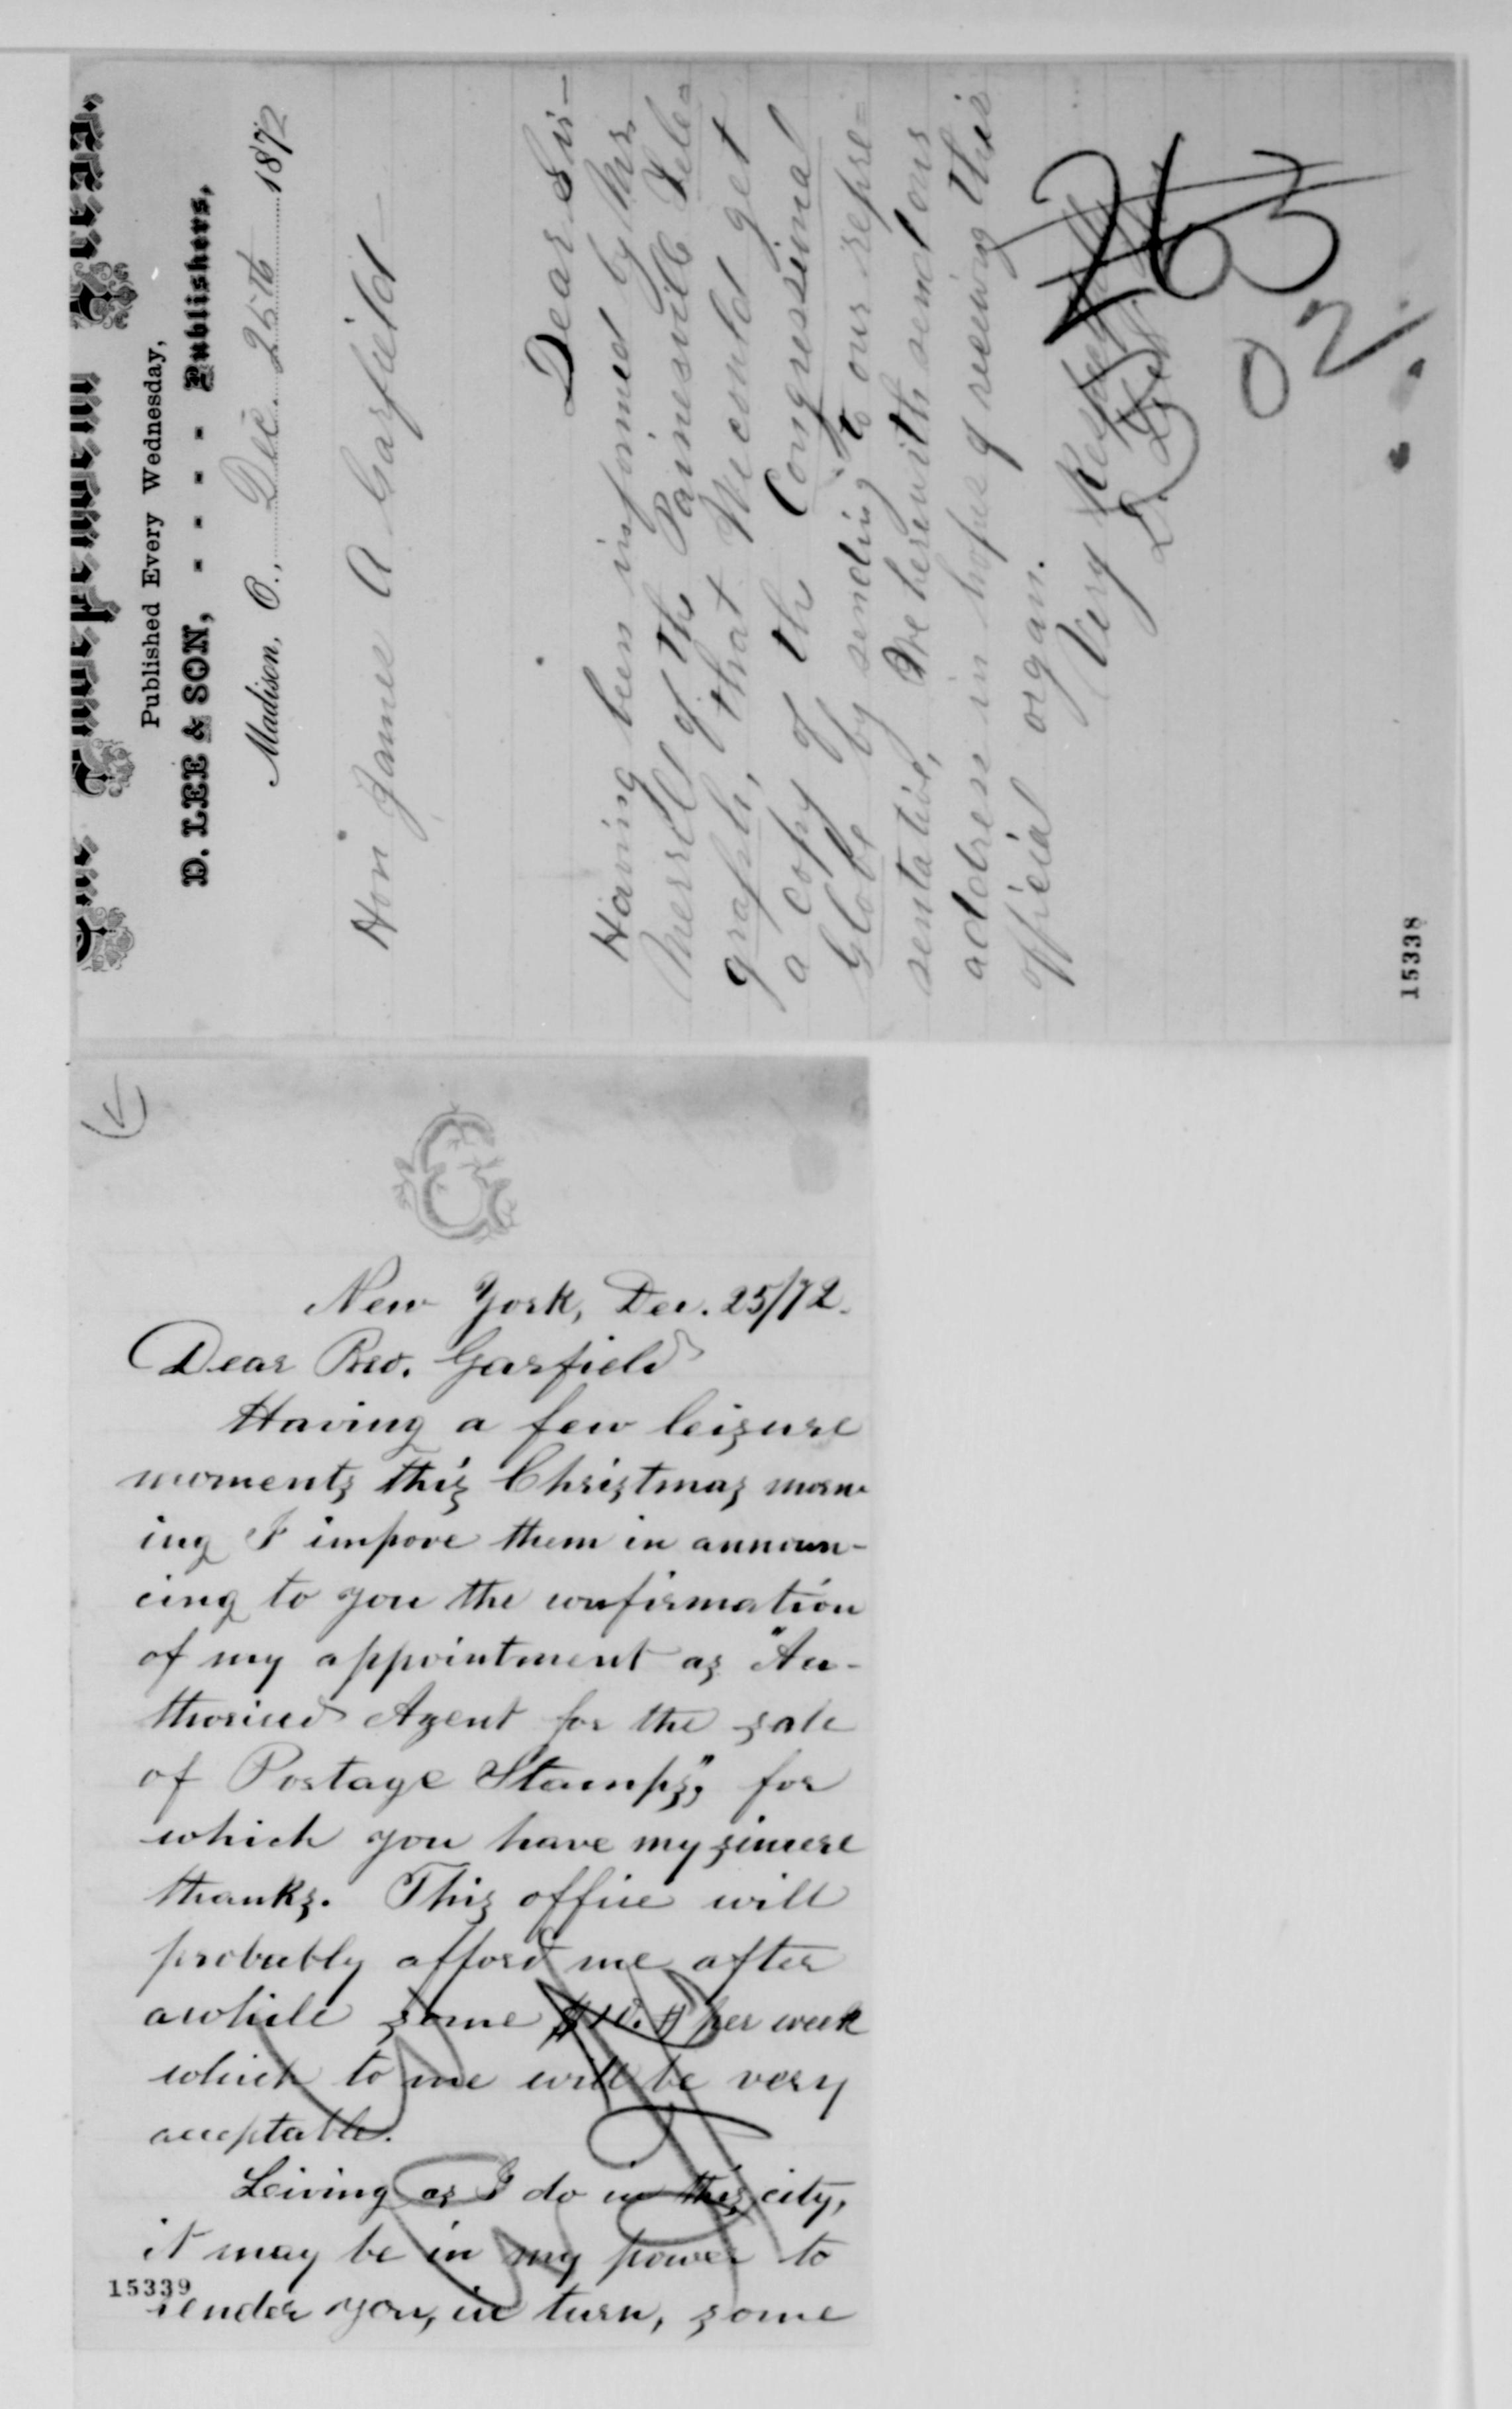 Published Every Wednesday,
D. LEE & SON, - - - - Publishers,
Madison, O., Dec. 25th 1872
Hon James A Garfield—
Dear Sir—
Having been informed by Mr.
Merrill of the Painesville Tele=
graph, that We could get
a copy of the Congressional
Globe by sending to our repre=
sentative, We herewith send our
address in hopes of receiving this
official organ.
Very Respectfully
D. Lee & Son
263
02
15338
New York, Dec. 25/72.
Dear Bro. Garfield
Having a few leisure
moments this Christmas morn-
ing I impove them in announ-
cing to you the confirmation
of my appointment as "Au-
thorised Agent for the sale
of Postage Stamps", for
which you have my sincere
thanks. This office will
probably afford me after
awhile some $10. per week
which to me will be very
acceptable.
Living as I do in this city,
it may be in my power to
render you, in turn, some
15339